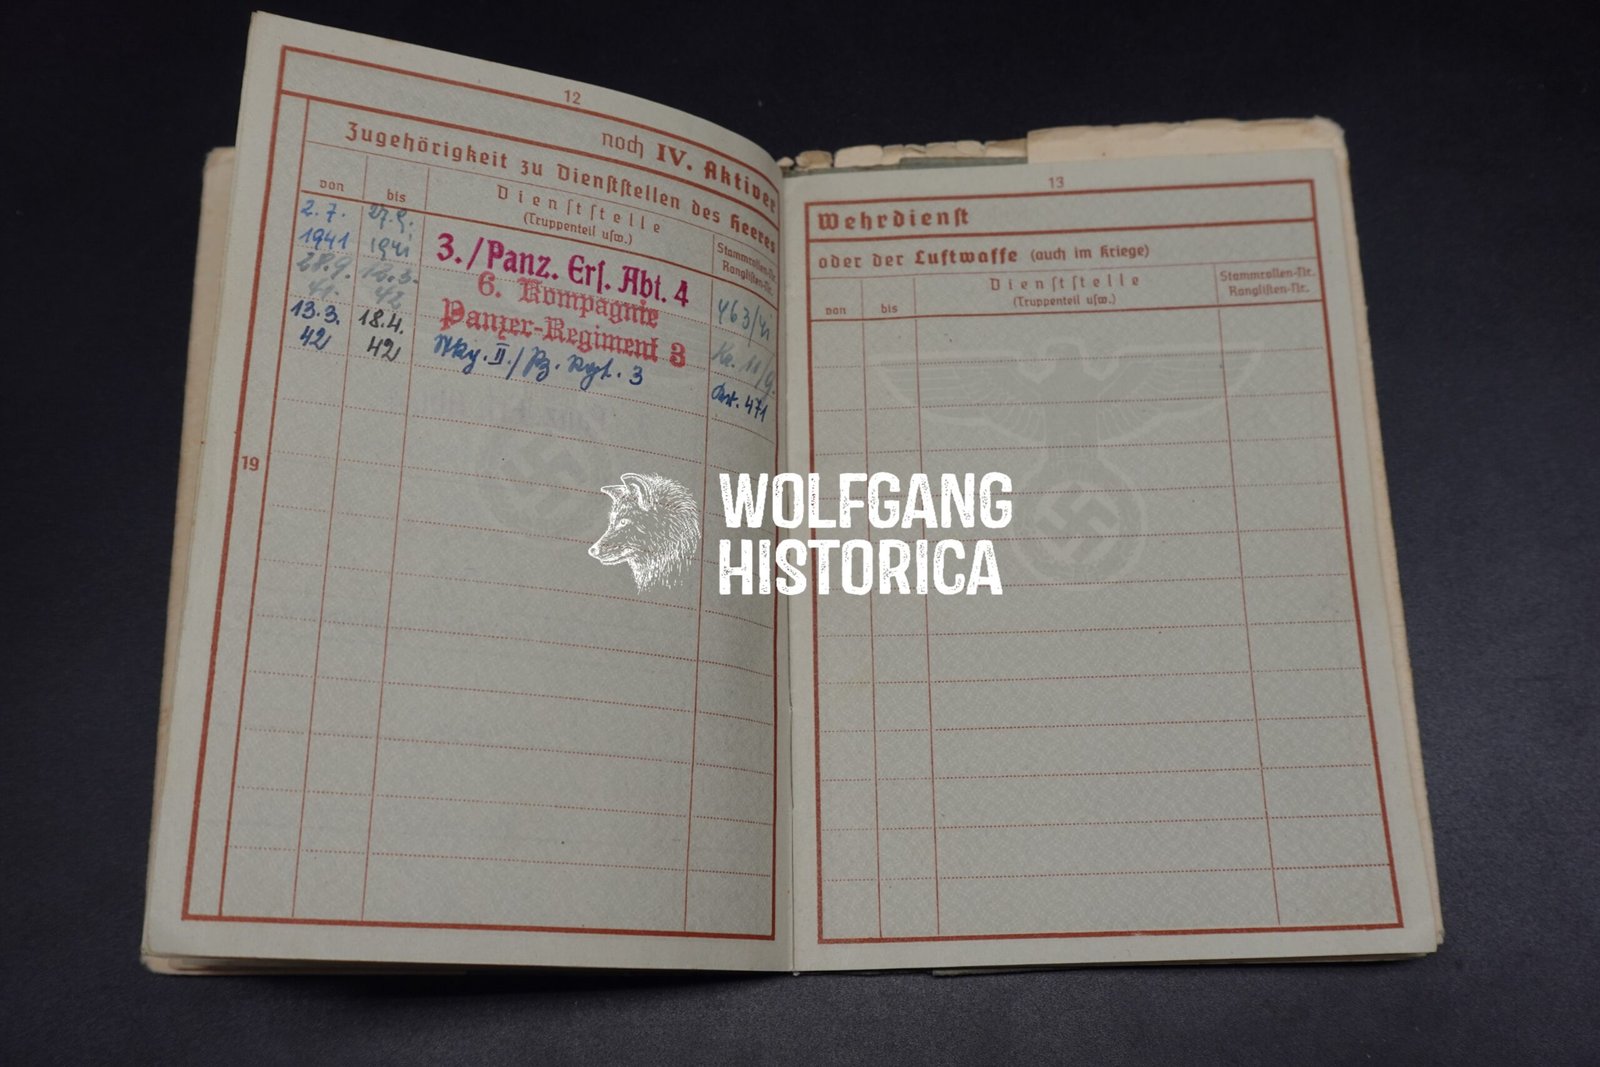 12
noch IV. Aktiver
Zugehörigkeit zu Dienststellen des Heeres
von
bis
Dienststelle
(Truppenteil usw.)
Stammrollen-Nr.
Ranglisten-Nr.
2.7.
1941
27.9.
1941
3./Panz. Ers. Abt. 4
463/41
28.9.
41.
12.3.
42
6. Kompagnie
Panzer-Regiment 3
13.3.
42
18.4.
42
II./Pz. Rgt. 3
471
19
13
Wehrdienst
oder der Luftwaffe (auch im Kriege)
von
bis
Dienststelle
(Truppenteil usw.)
Stammrollen-Nr.
Ranglisten-Nr.
WOLFGANG
HISTORICA